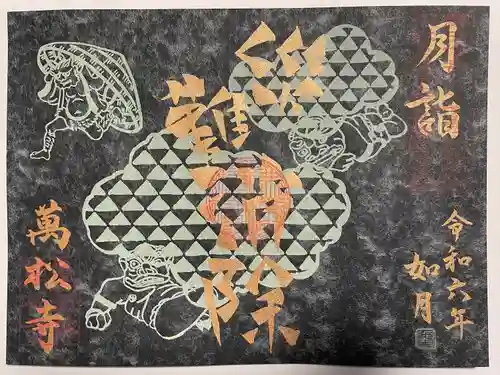 月詣
令和六年
如月
災難
消除
萬松寺